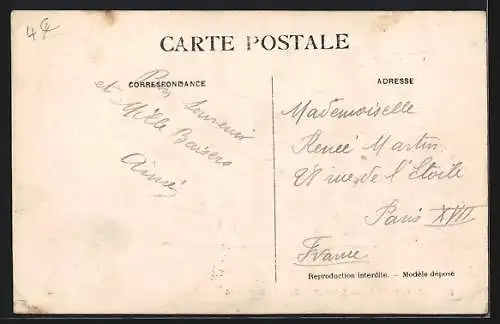 4€
CARTE POSTALE
CORRESPONDANCE
Bon Souvenir
et Mille Baisers
Aimé
ADRESSE
Mademoiselle
Renée Martin
rue de l'Etoile
Paris XVII
France
Reproduction interdite. — Modèle déposé